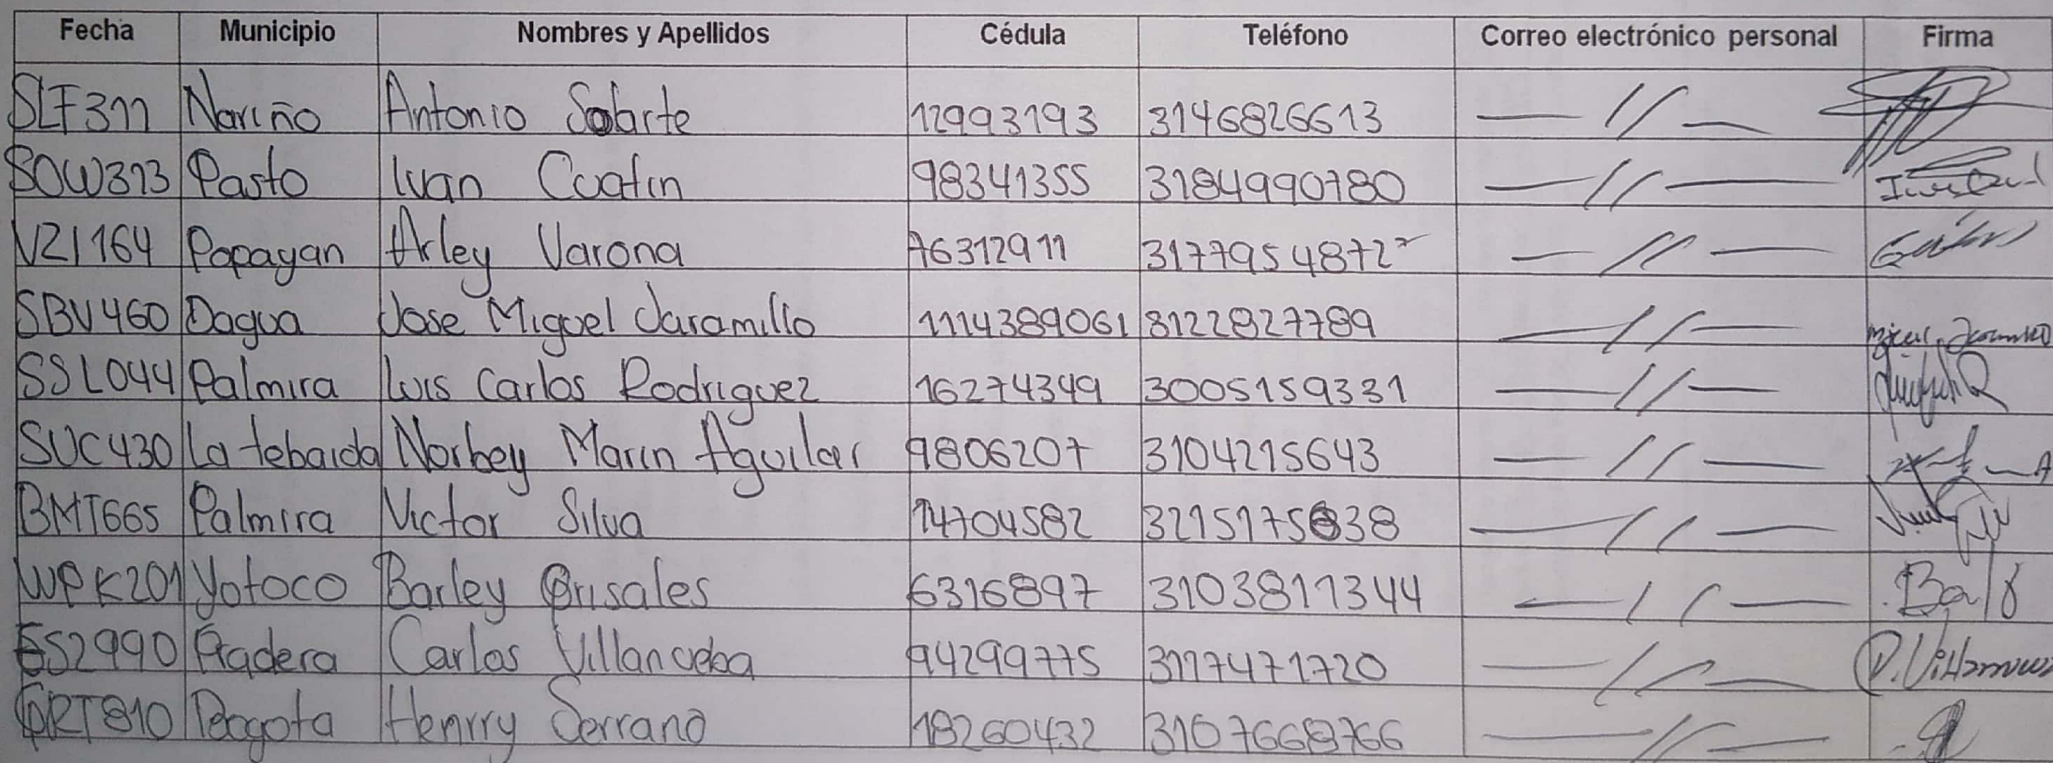 Fecha Municipio Nombres y Apellidos Cédula Teléfono Correo electrónico personal Firma
SLF311 Nariño Antonio Solarte 12993193 3146826613 — // —
SOW313 Pasto Ivan Cuatin 98341355 3184990780 — // —
VZI164 Popayan Arley Varona 76312911 3177954872 — // —
SBV460 Dagua Jose Miguel Jaramillo 1114389061 3122827789 — // —
SSL044 Palmira Luis Carlos Rodriguez 16274349 3005159331 — // —
SUC430 La tebaida Norbey Marin Aguilar 9806207 3104215643 — // —
BMT665 Palmira Victor Silva 14704582 3215175838 — // —
WPK201 Yotoco Barley Grisales 6316897 3103811344 — // —
Pradera Carlos Villanueba 94299775 3117471720 — // —
Bogota Henrry Serrano 18260432 3107668766 — // —